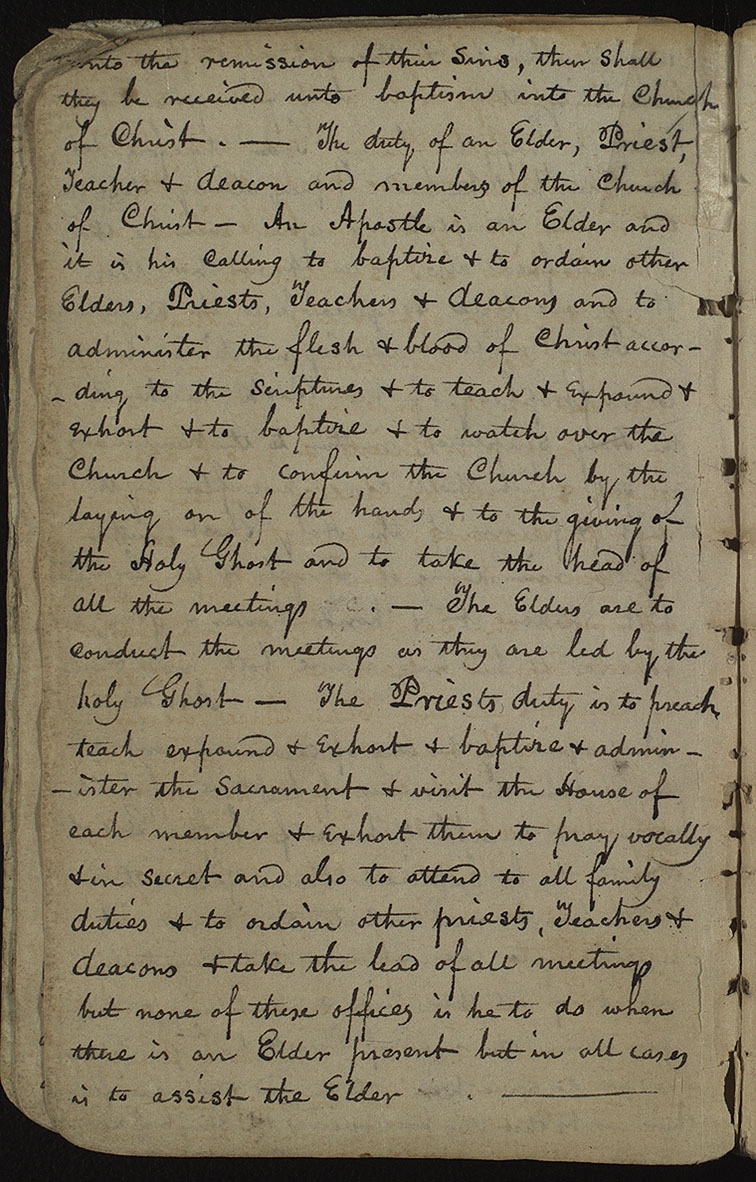 unto the remission of their Sins, then shall
they be received unto baptism into the Church
of Christ . — The duty of an Elder, Priest,
Teacher & deacon and members of the Church
of Christ — An Apostle is an Elder and
it is his Calling to baptize & to ordain other
Elders, Priests, Teachers & deacons and to
administer the flesh & blood of Christ accor-
-ding to the Scriptures & to teach & Expound &
exhort & to baptize & to watch over the
Church & to confirm the Church by the
laying on of the hands & to the giving of
the Holy Ghost and to take the head of
all the meetings . — The Elders are to
conduct the meetings as they are led by the
holy Ghost — The Priests duty is to preach,
teach expound & Exhort & baptize & admin-
-ister the Sacrament & visit the House of
each member & Exhort them to pray vocally
& in secret and also to attend to all family
duties & to ordain other priests, Teachers &
deacons & take the lead of all meetings
but none of these offices is he to do when
there is an Elder present but in all cases
is to assist the Elder . —